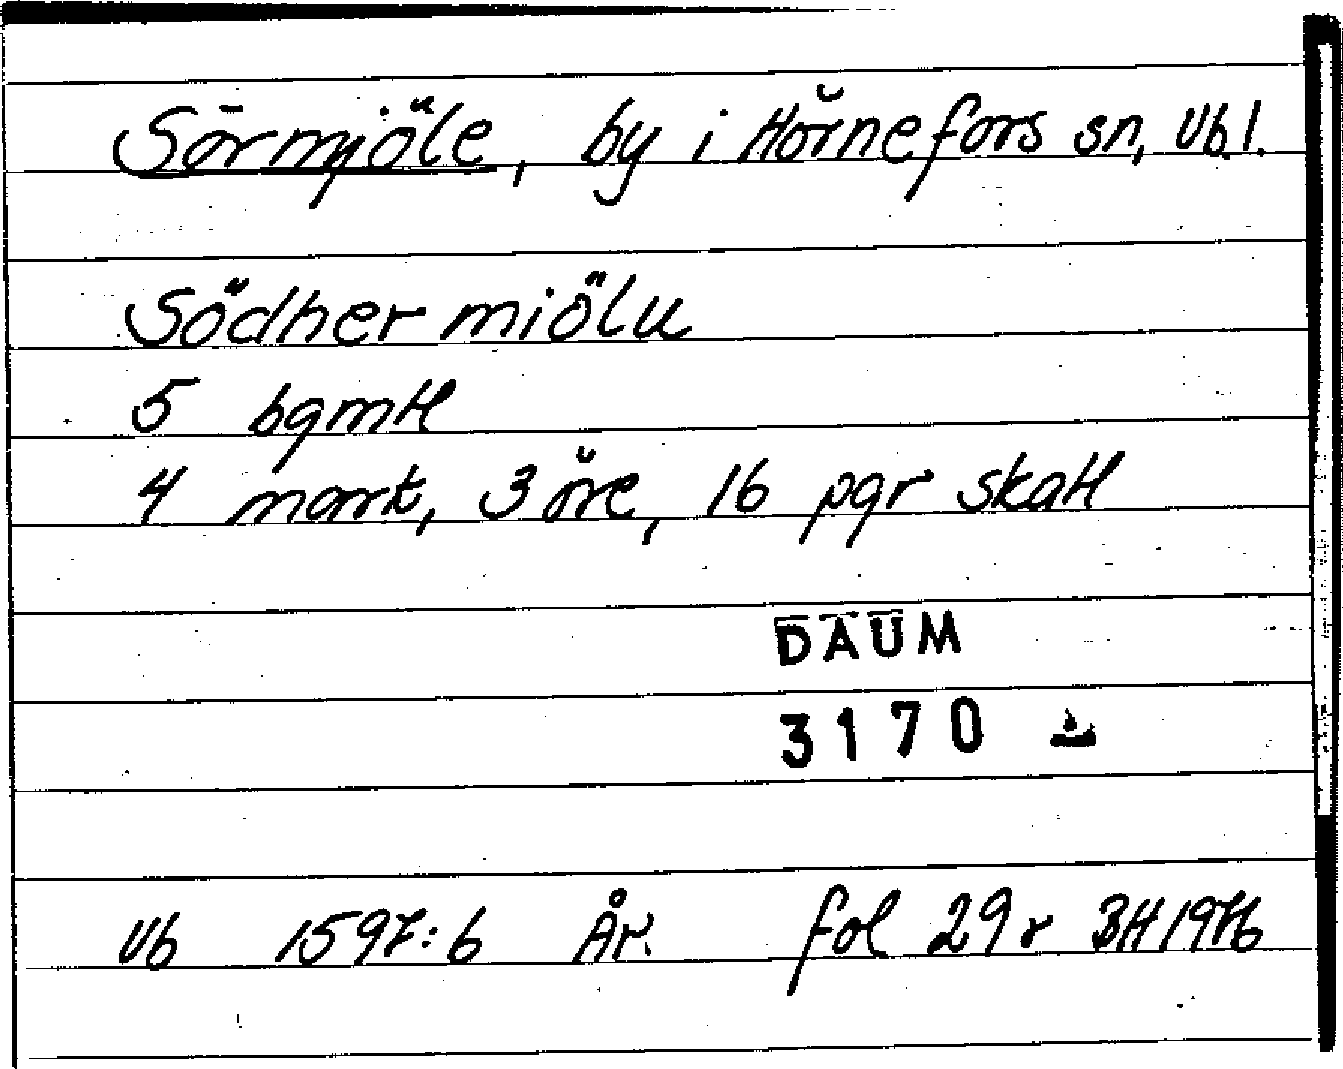 Sörmjöle, by i Hörnefors sn, Vb.l.
Södher miölu
5 bgmtl
4 mark, 3 öre, 16 pgr skatt
DAUM
3170
Vb 1597:6 Är. fol 29r BH 1976